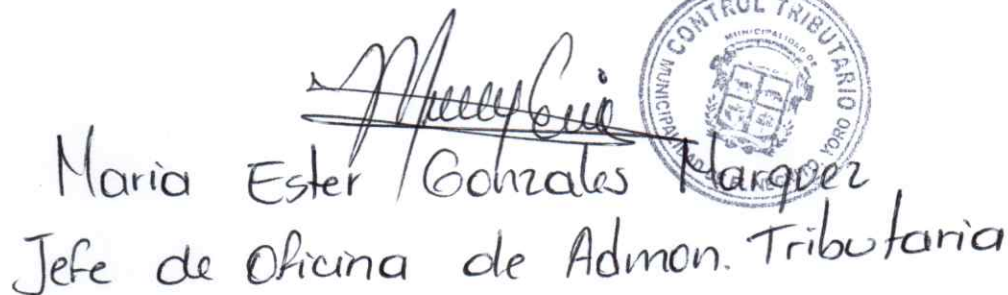 CONTROL TRIBUTARIO
MUNICIPALIDAD DE
YORO
Maria Ester Gonzales Marquez
Jefe de Oficina de Admon. Tributaria